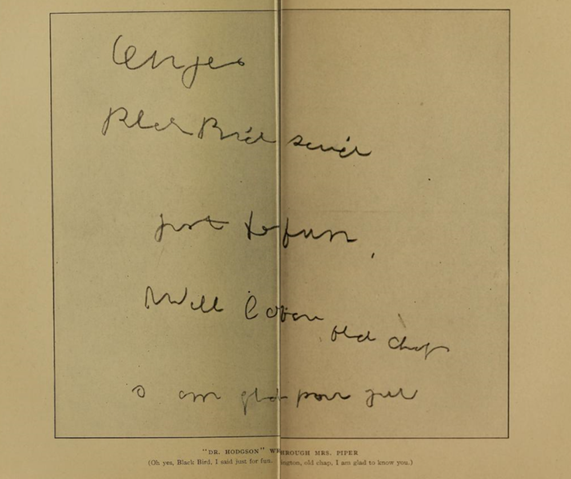 Oh yes
Black Bird said
just for fun,
Well old chap
I am glad know you
"DR. HODGSON" W HROUGH MRS. PIPER
(Oh yes, Black Bird, I said just for fun. ington, old chap, I am glad to know you.)